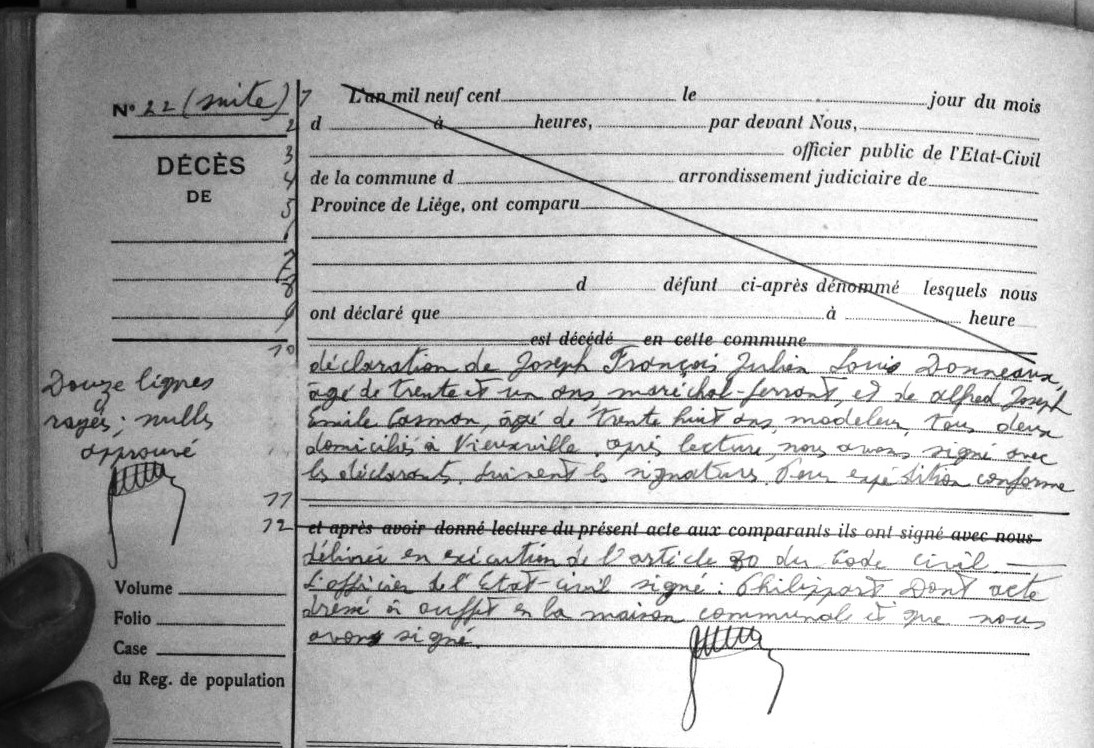 N° 22 (suite)
DÉCÈS
DE
1
2
3
4
5
7
8
9
10
11
12
L'an mil neuf cent le jour du mois
d à heures, par devant Nous,
officier public de l'Etat-Civil
de la commune d arrondissement judiciaire de
Province de Liége, ont comparu
d défunt ci-après dénommé lesquels nous
ont déclaré que à heure
est décédé en cette commune
déclaration de Joseph François Julien Louis Donneaux,
âgé de trente et un ans maréchal-ferrant, et de Alfred Joseph
Emile Cosmon, âgé de trente huit ans, modeleur, tous deux
domiciliés à Vieuxville. après lecture, nous avons signé avec
les déclarants. Suivent les signatures. Pour expédition conforme
et après avoir donné lecture du présent acte aux comparants ils ont signé avec nous
délivrée en exécution de l'article 80 du Code civil.
L'officier de l'Etat-civil signé: Philippart Dont acte
dressé à Ouffet en la maison communale et que nous
avons signé.
Douze lignes
rayés; nulls
approuvé
Volume
Folio
Case
du Reg. de population